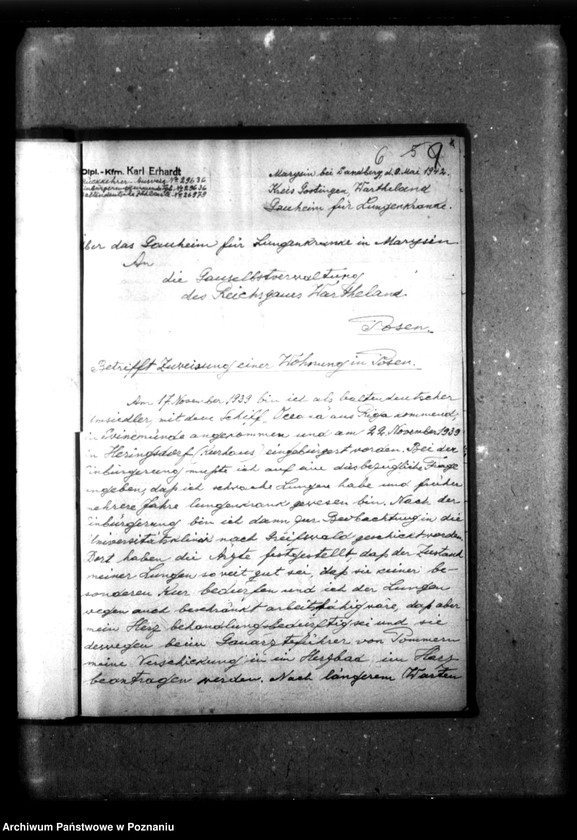 6 5 9
Dipl.-Kfm. Karl Erhardt
Rückkehrer Ausweis № 29636
Einbürgerungsurkunde № 29636
Baltendeutsche № 26979
Marysin bei Sandberg d. 8. Mai 1942.
Kreis Gostingen, Wartheland
Gauheim für Lungenkranke.
Über das Gauheim für Lungenkranke in Marysin
An
die Gauselbstverwaltung
des Reichsgaues Wartheland.
Posen.
Betrifft Zuweisung einer Wohnung in Posen.
Am 17. November 1939 bin ich als baltendeutscher
Umsiedler, mit dem Schiff Oceana aus Riga kommend,
in Swinemünde angekommen und am 22. November 1939
in Heringsdorf (Kurhaus) eingebürgert worden. Bei der
Einbürgerung mußte ich auf eine diesbezügliche Frage
angeben, daß ich schwache Lungen habe und früher
mehrere Jahre lungenkrank gewesen bin. Nach der
Einbürgerung bin ich dann zur Beobachtung in die
Universitätsklinik nach Greifswald geschickt worden.
Dort haben die Ärzte festgestellt daß der Zustand
meiner Lungen soweit gut sei, daß sie einer be-
sonderen Kur bedürfen und ich der Lungen
wegen auch beschränkt arbeitsfähig wäre, daß aber
mein Herz behandlungsbedürftig sei und sie
deswegen beim Gauärzteführer von Pommern
meine Verschickung in ein Herzbad im Harz
beantragen werden. Nach längerem Warten
Archiwum Państwowe w Poznaniu